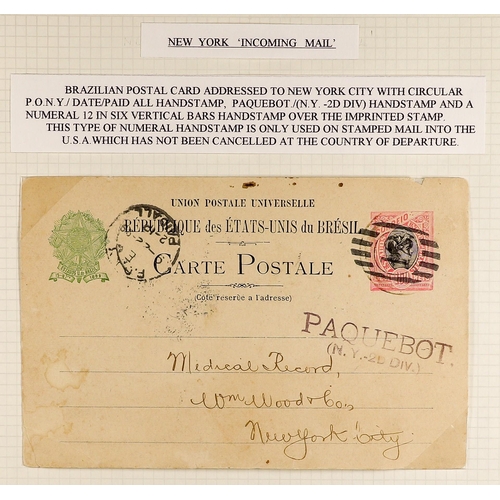 NEW YORK 'INCOMING MAIL'
BRAZILIAN POSTAL CARD ADDRESSED TO NEW YORK CITY WITH CIRCULAR
P.O.N.Y./ DATE/PAID ALL HANDSTAMP, PAQUEBOT./(N.Y. -2D DIV) HANDSTAMP AND A
NUMERAL 12 IN SIX VERTICAL BARS HANDSTAMP OVER THE IMPRINTED STAMP.
THIS TYPE OF NUMERAL HANDSTAMP IS ONLY USED ON STAMPED MAIL INTO THE
U.S.A WHICH HAS NOT BEEN CANCELLED AT THE COUNTRY OF DEPARTURE.
UNION POSTALE UNIVERSELLE
RÉPUBLIQUE des ÉTATS-UNIS du BRÉSIL
CARTE POSTALE
(Côté reservé a l'adresse)
12
PAQUEBOT.
(N.Y.-2D DIV.)
Medical Record,
Wm Wood & Co,
New York City